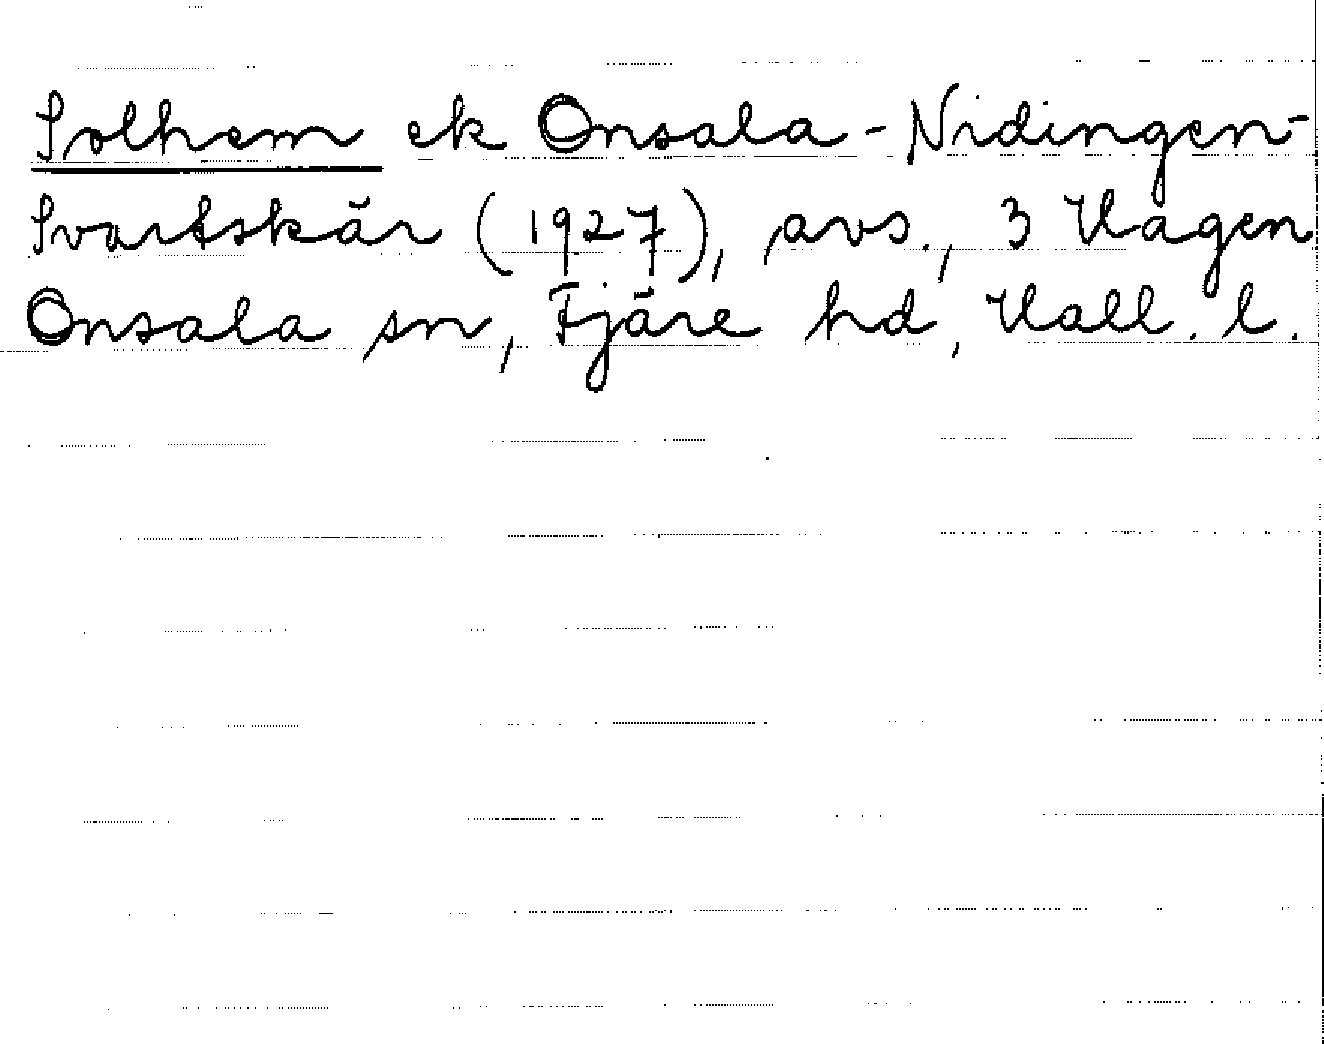 Solhem ek Onsala-Nidingen-
Svartskär (1927), avs., 3 Hagen
Onsala sn, Fjäre hd, Hall. l.